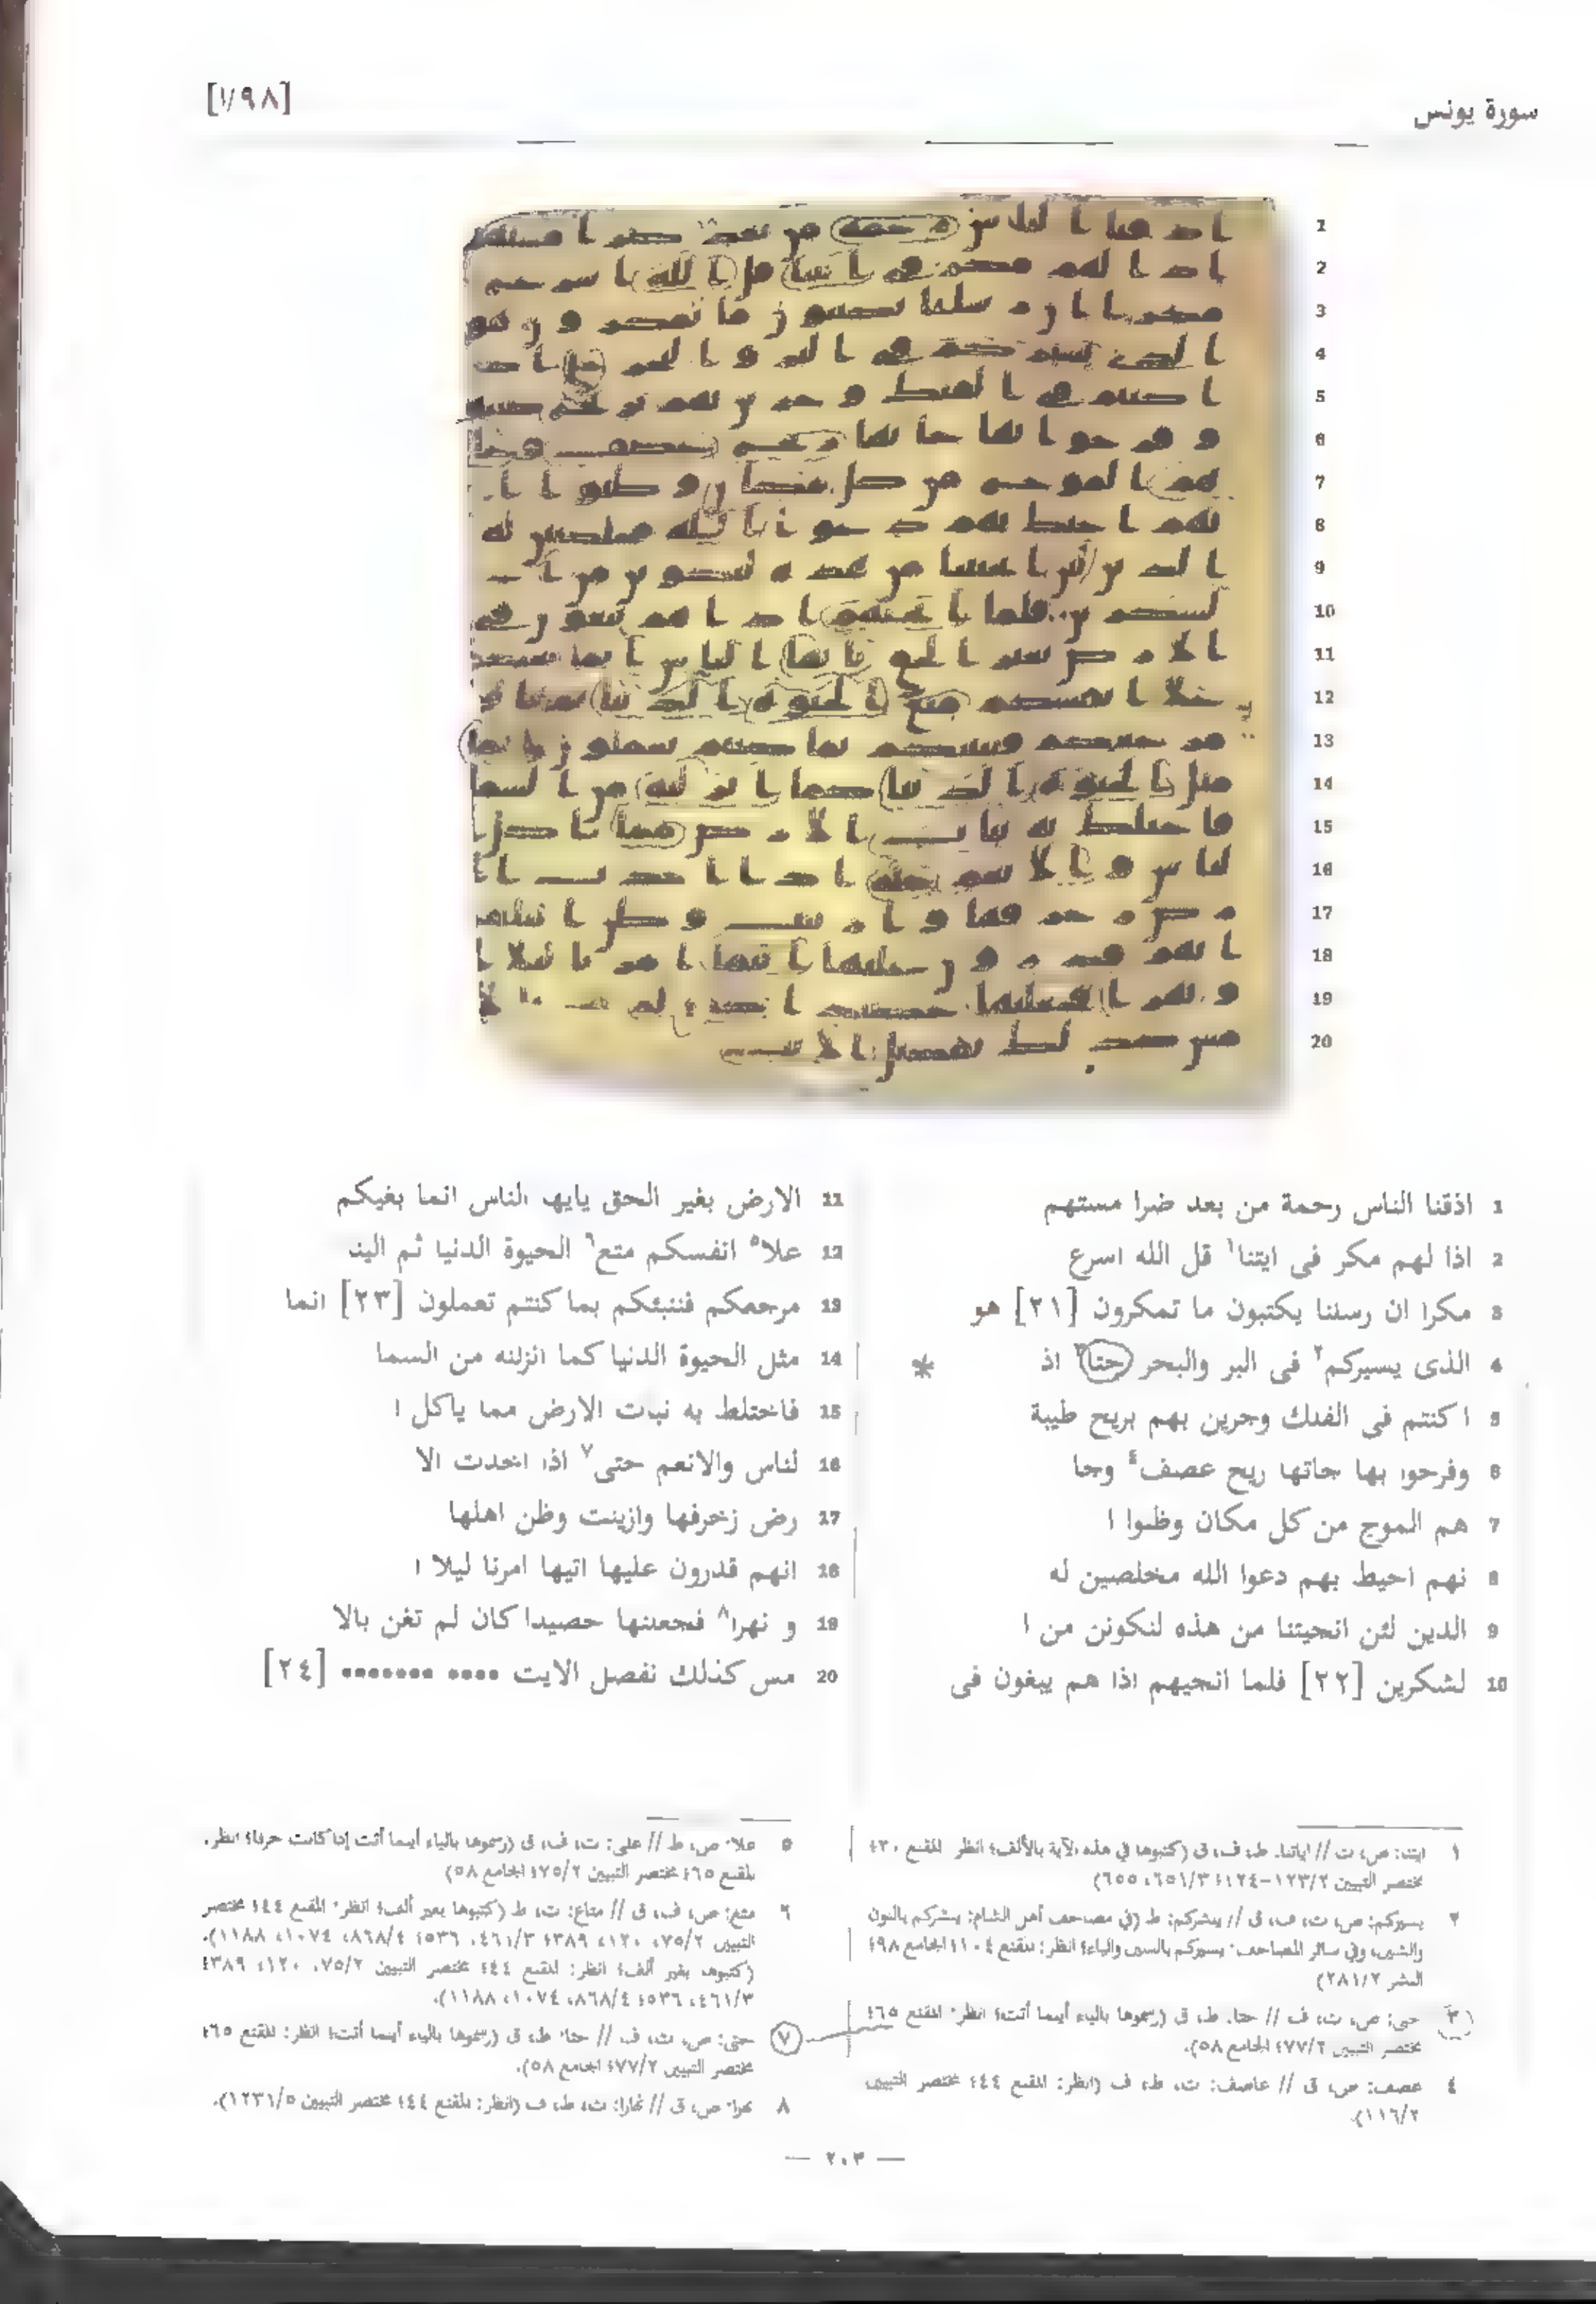 سورة يونس
[١/٩٨]
1 اذقنا الناس رحمة من بعد ضرا مستهم
2 اذا لهم مكر فى ايتنا١ قل الله اسرع
3 مكرا ان رسلنا يكتبون ما تمكرون [٢١] هو
4 الذى يسيركم٢ فى البر والبحر حتا٣ اذ *
5 ا كنتم فى الفلك وجرين بهم بريح طيبة
6 وفرحوا بها جاتها ريح عصف٤ وجا
7 هم الموج من كل مكان وظنوا ا
8 نهم احيط بهم دعوا الله مخلصين له
9 الدين لئن انجيتنا من هذه لنكونن من ا
10 لشكرين [٢٢] فلما انجيهم اذا هم يبغون فى
11 الارض بغير الحق يايها الناس انما بغيكم
12 علا٥ انفسكم متع٦ الحيوة الدنيا ثم الينا
13 مرجعكم فننبئكم بما كنتم تعملون [٢٣] انما
14 مثل الحيوة الدنيا كما انزلنه من السما
15 فاختلط به نبات الارض مما ياكل ا
16 لناس والانعم حتى٧ اذا اخذت الا
17 رض زخرفها وازينت وظن اهلها
18 انهم قدرون عليها اتيها امرنا ليلا ا
19 و نهرا٨ فجعلنها حصيدا كان لم تغن بالا
20 مس كذلك نفصل الايت •••• ••••••• [٢٤]
١ ايتنا: ص، ت // اياتنا: ط، ف، ق (كتبوها في هذه الآية بالألف؛ انظر: المقنع ٣٠؛
مختصر التبيين ١٢٣/٢-١٢٤؛ ٦٥١/٣، ٦٥٥)
٢ يسيركم: ص، ت، ف، ق // ينشركم: ط (في مصاحف أهل الشام: ينشركم بالنون
والشين، وفي سائر المصاحف: يسيركم بالسين والياء؛ انظر: المقنع ١٠٤؛ الجامع ٩٨؛
النشر ٢٨١/٢)
٣ حتى: ص، ت، ف // حتا: ط، ق (رسموها بالياء أينما أتت؛ انظر: المقنع ٦٥؛
مختصر التبيين ٧٧/٢؛ الجامع ٥٨).
٤ عصف: ص، ق // عاصف: ت، ط، ف (انظر: المقنع ٤٤؛ مختصر التبيين
١١٦/٢).
٥ علا: ص، ط // على: ت، ف، ق (رسموها بالياء أينما أتت إذا كانت حرفا؛ انظر:
المقنع ٦٥؛ مختصر التبيين ٧٥/٢؛ الجامع ٥٨)
٦ متع: ص، ف، ق // متاع: ت، ط (كتبوها بغير ألف؛ انظر: المقنع ٤٤؛ مختصر
التبيين ٧٥/٢، ١٢٠، ٣٨٩؛ ٤٦١/٣، ٥٣٦؛ ٨٦٨/٤، ١٠٧٤، ١١٨٨).
(كتبوها بغير ألف؛ انظر: المقنع ٤٤؛ مختصر التبيين ٧٥/٢، ١٢٠، ٣٨٩؛
٤٦١/٣، ٥٣٦؛ ٨٦٨/٤، ١٠٧٤، ١١٨٨).
٧ حتى: ص، ت، ف // حتا: ط، ق (رسموها بالياء أينما أتت؛ انظر: المقنع ٦٥؛
مختصر التبيين ٧٧/٢؛ الجامع ٥٨).
٨ نهرا: ص، ق // نهارا: ت، ط، ف (انظر: المقنع ٤٤؛ مختصر التبيين ١٢٣١/٥).
— ٢٠٣ —